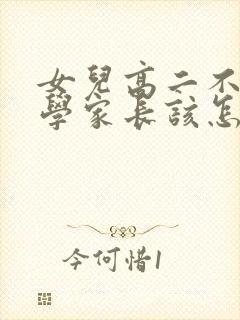 女兒高二不
學家長該怎
今何惜1